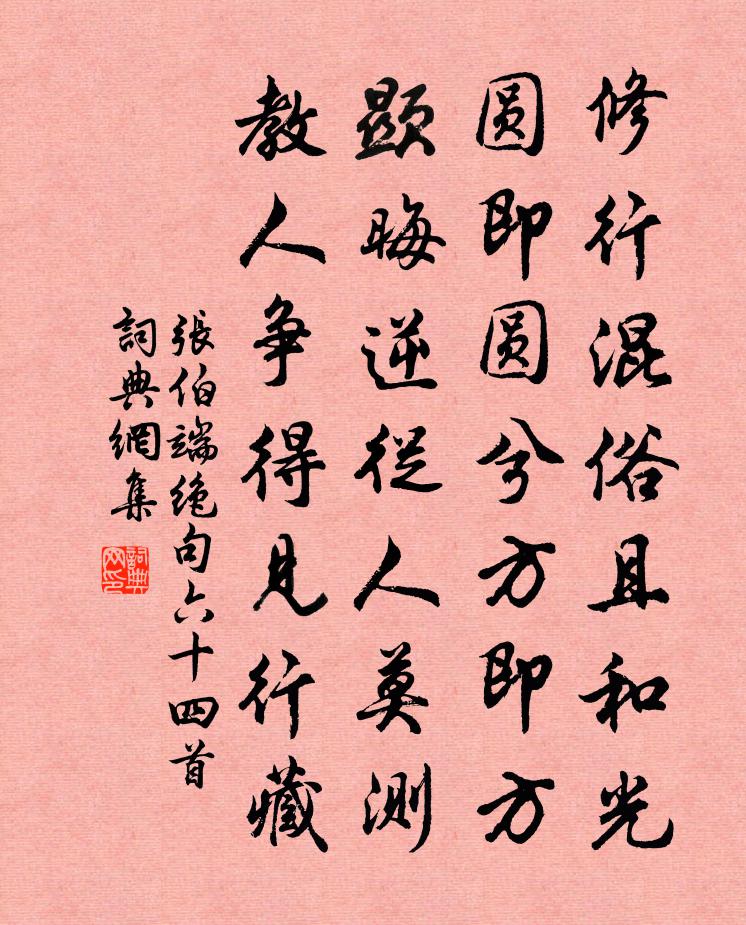 修行混俗且和光
圆即圆兮方即方
顯晦逆從人莫測
教人争得見行藏
張伯端絶句六十四首
詞典網集
詞典網印